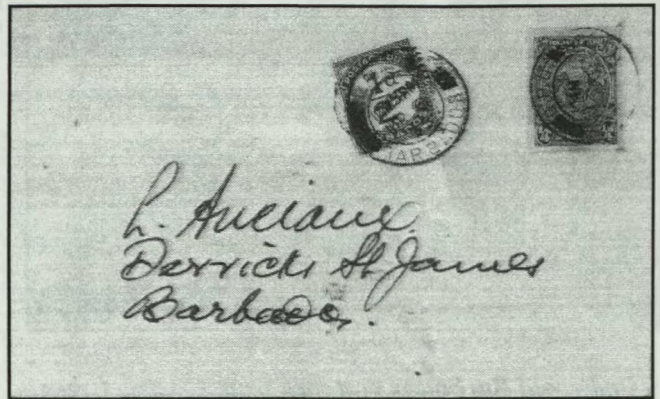 L. Anciaux.
Derricks St James
Barbados.